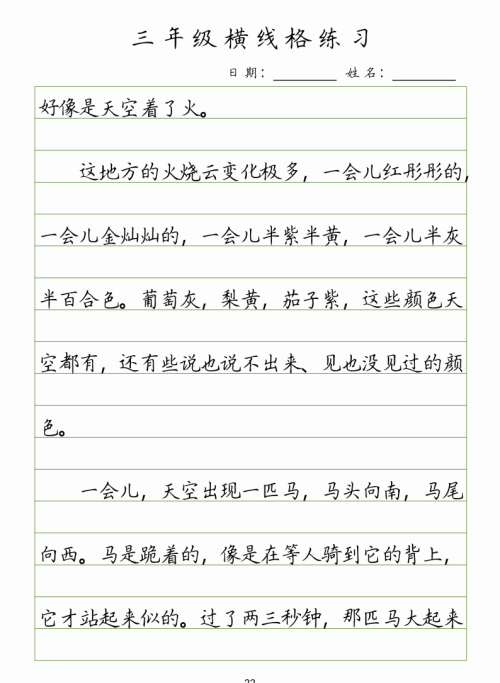 三年级横线格练习
日期：________ 姓名：________
好像是天空着了火。
这地方的火烧云变化极多，一会儿红彤彤的，
一会儿金灿灿的，一会儿半紫半黄，一会儿半灰
半百合色。葡萄灰，梨黄，茄子紫，这些颜色天
空都有，还有些说也说不出来、见也没见过的颜
色。
一会儿，天空出现一匹马，马头向南，马尾
向西。马是跪着的，像是在等人骑到它的背上，
它才站起来似的。过了两三秒钟，那匹马大起来